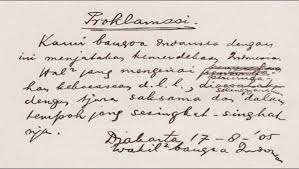 Proklamasi.
Kami bangsa Indonesia dengan
ini menjatakan kemerdekaan Indonesia.
Hal² jang mengenai
kan kekoeasaan d.l.l.,
dengan tjara saksama dan dalam
tempoh jang sesingkat-singkat-
nja.
Djakarta 17-8-'05
Wakil² bangsa